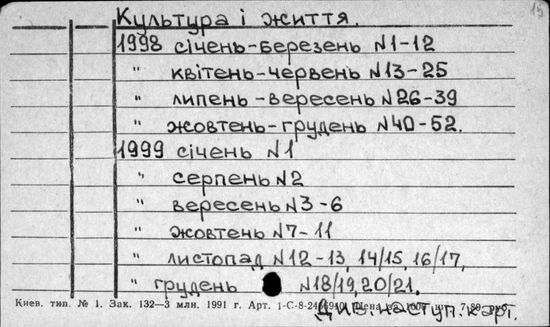 15
Культура і життя.
1998 січень-березень N1-12
" квітень-червень N13-25
" липень-вересень N26-39
" жовтень-грудень N40-52.
1999 січень N1
" серпень N2
" вересень N3-6
" жовтень N7-11
" листопад N12-13, 14/15, 16/17,
" грудень N18/19, 20/21.
Киев. тип. № 1. Зак. 132—3 млн. 1991 г. Арт. 1-С-8-24
Див. наступ. карт.